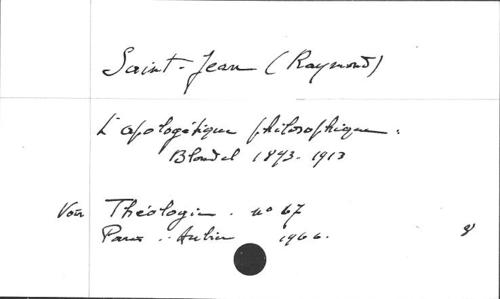 Saint-Jean (Raymond)
L'apologétique philosophique.
Blondel 1893-1913
Voir Théologie. n° 67
Paris.. Aubier 1966.